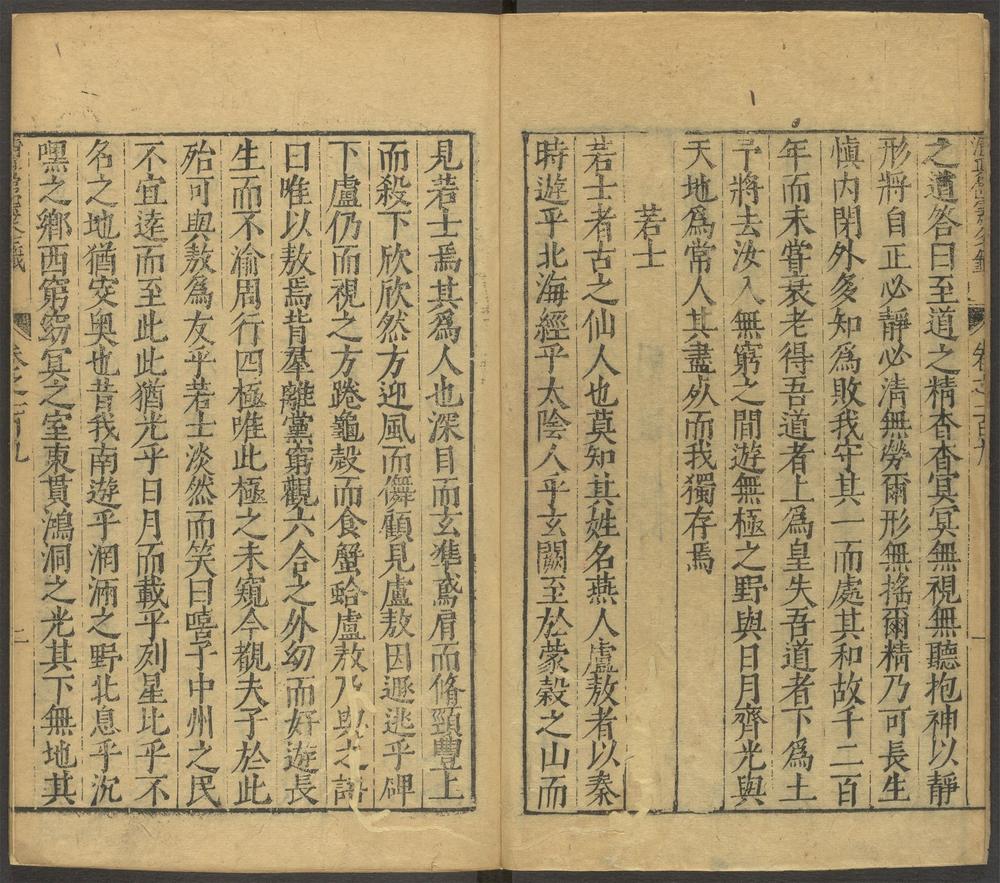 之道答曰至道之精杳杳冥冥無視無聽抱神以靜
形將自正必靜必清無勞爾形無搖爾精乃可長生
慎內閉外多知爲敗我守其一而處其和故千二百
年而未嘗衰老得吾道者上爲皇失吾道者下爲土
予將去汝入無窮之間遊無極之野與日月齊光與
天地爲常人其盡死而我獨存焉
若士
若士者古之仙人也莫知其姓名燕人盧敖者以秦
時遊乎北海經乎太陰入乎玄闕至於蒙穀之山而
見若士焉其爲人也深目而玄準鳶肩而脩頸豐上
而殺下欣欣然方迎風而儛顧見盧敖因遯逃乎碑
下盧仍而視之方踡龜殼而食蟹蛤盧敖乃與之語
曰唯以敖焉背羣離黨窮觀六合之外幼而好遊長
生而不渝周行四極唯此極之未窺今覩夫子於此
殆可與敖爲友乎若士淡然而笑曰嘻子中州之民
不宜逺而至此此猶光乎日月而載乎列星比乎不
名之地猶突奥也昔我南遊乎洞湎之野北息乎沉
嘿之鄉西窮窈冥之室東貫鴻洞之光其下無地其
卷之一百九
二